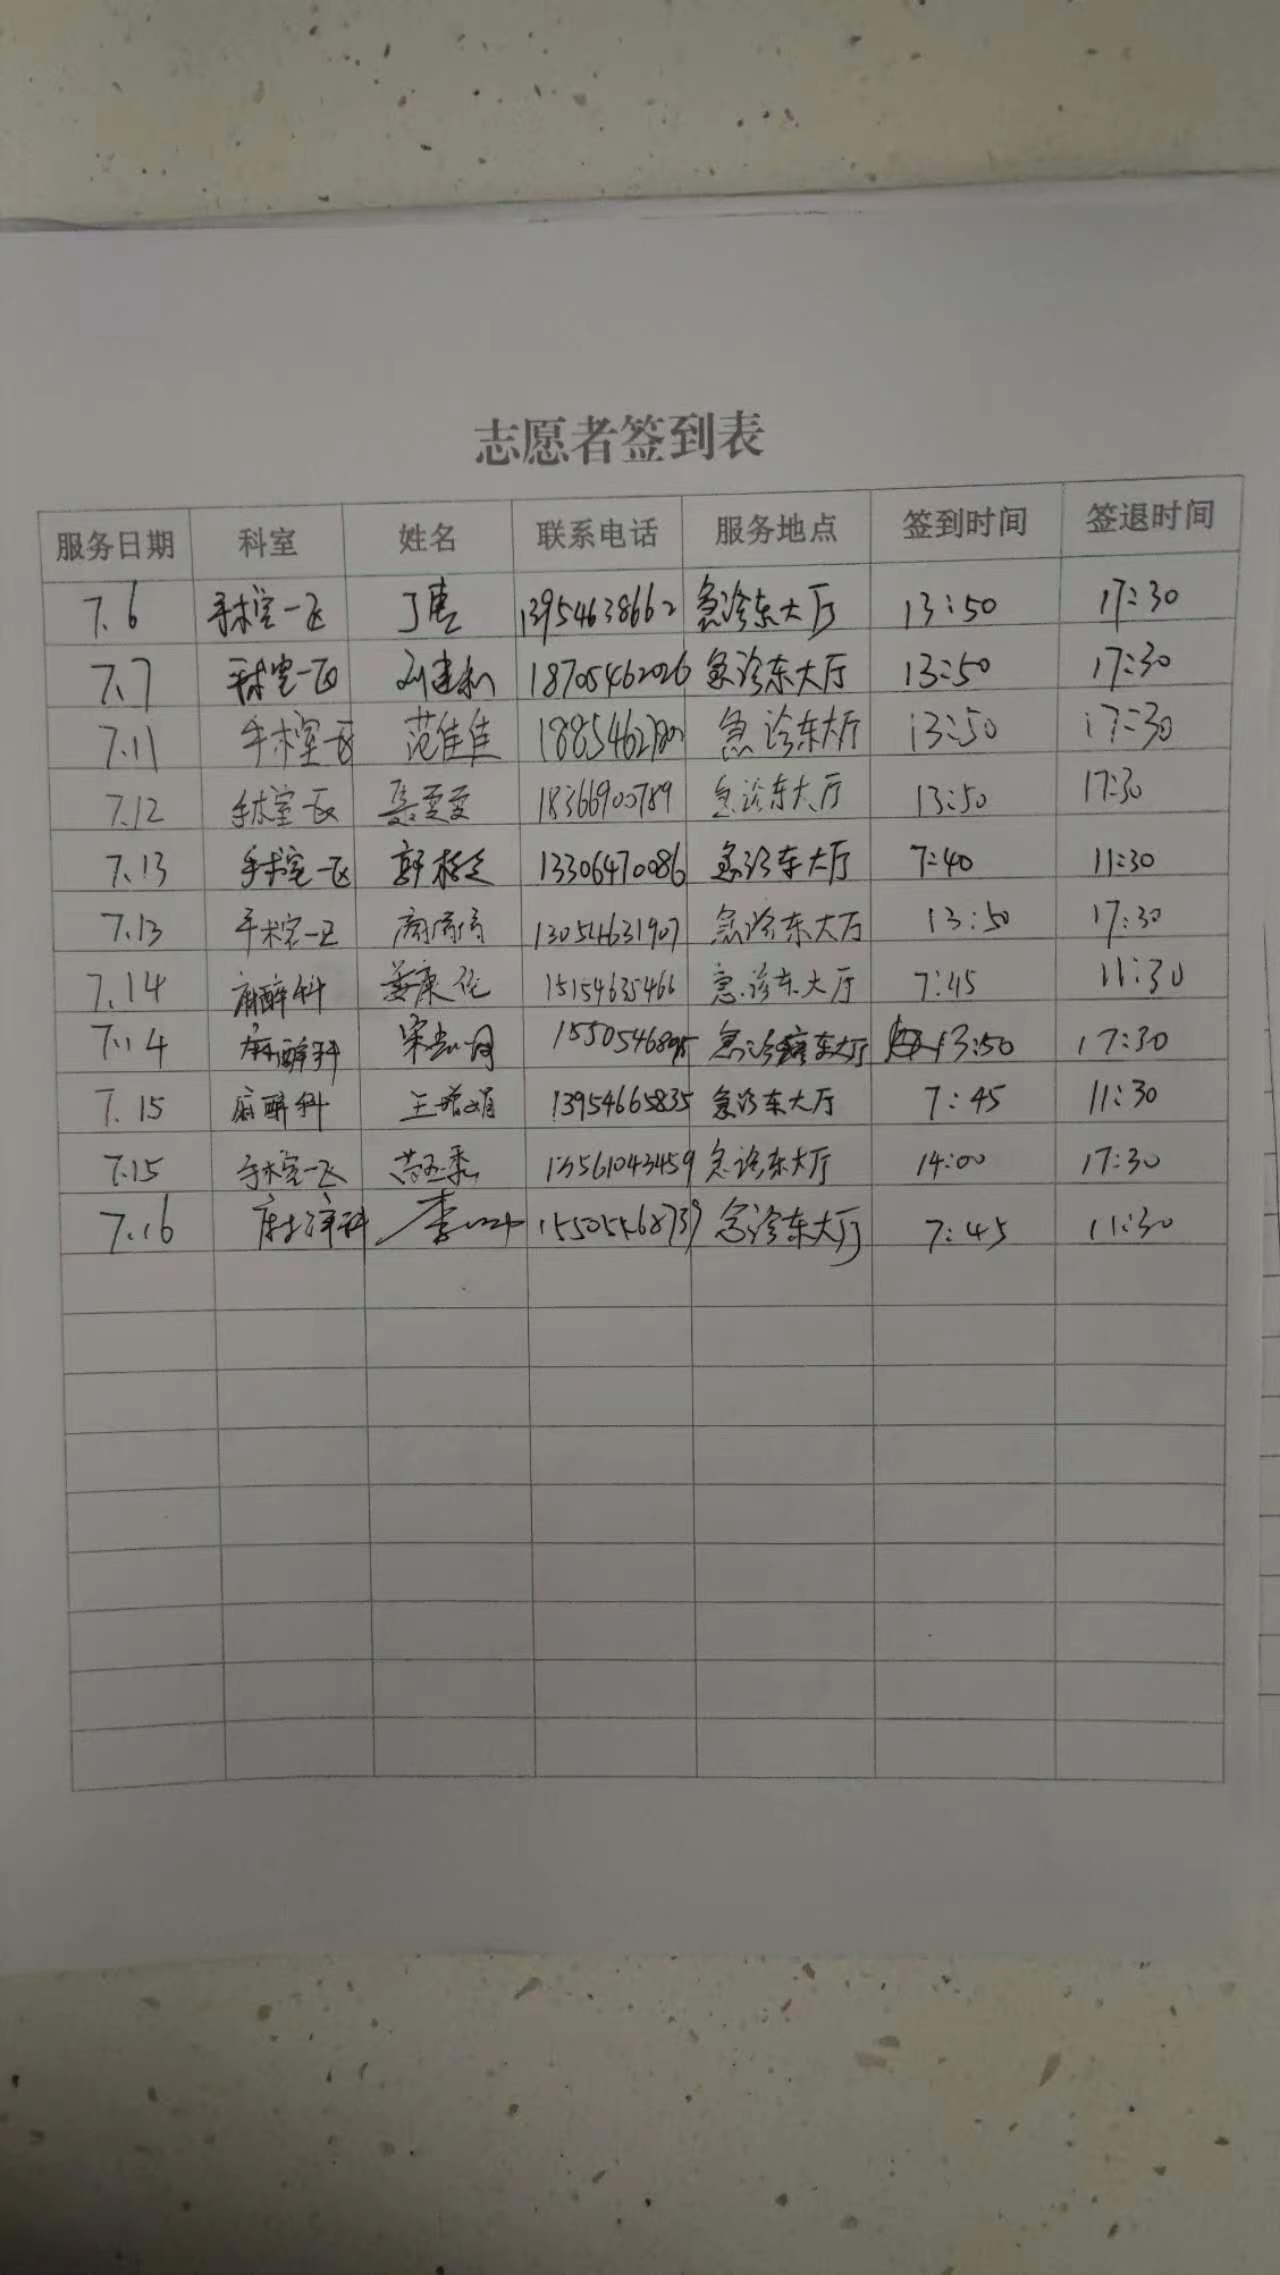 志愿者签到表
服务日期 科室 姓名 联系电话 服务地点 签到时间 签退时间
7.6 手术室一区 丁 13954638662 急诊东大厅 13:50 17:30
7.7 手术室一区 刘建利 18705462026 急诊东大厅 13:50 17:30
7.11 手术室一区 范佳佳 急诊东大厅 13:50 17:30
7.12 手术室一区 聂雯雯 18366900789 急诊东大厅 13:50 17:30
7.13 手术室一区 郭 13306470086 急诊东大厅 7:40 11:30
7.13 手术室一区 13054631907 急诊东大厅 13:50 17:30
7.14 麻醉科 姜康伦 15154635466 急诊东大厅 7:45 11:30
7.14 麻醉科 宋 急诊东大厅 13:50 17:30
7.15 麻醉科 王增娟 13954665835 急诊东大厅 7:45 11:30
7.15 手术室一区 13561043459 急诊东大厅 14:00 17:30
7.16 麻醉科 李 15505468739 急诊东大厅 7:45 11:30